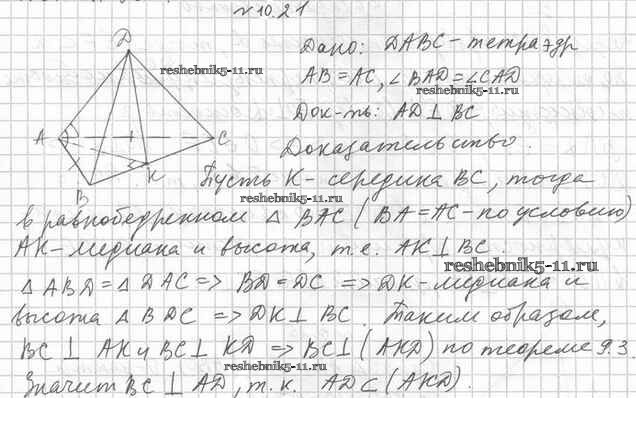 №10.21
Дано: DABC – тетраэдр
AB = AC, ∠BAD = ∠CAD
Док-ть: AD ⊥ BC
Доказательство.
Пусть K – середина BC, тогда
в равнобедренном △ BAC (BA = AC – по условию)
AK – медиана и высота, т.е. AK ⊥ BC.
△ ABD = △ DAC => BD = DC => DK – медиана и
высота △ BDC => DK ⊥ BC. Таким образом,
BC ⊥ AK и BC ⊥ KD => BC ⊥ (AKD) по теореме 9.3.
Значит BC ⊥ AD, т.к. AD ⊂ (AKD).
D
A
B
C
K
reshebnik5-11.ru
reshebnik5-11.ru
reshebnik5-11.ru
reshebnik5-11.ru
reshebnik5-11.ru
reshebnik5-11.ru